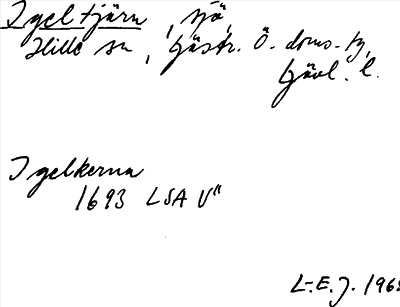 Igeltjärn, sjö,
Hille sn, Gästr. Ö. doms.-tg,
Gävl. l.
Igelkerna
1693 LSA V"
L-E.J. 1968